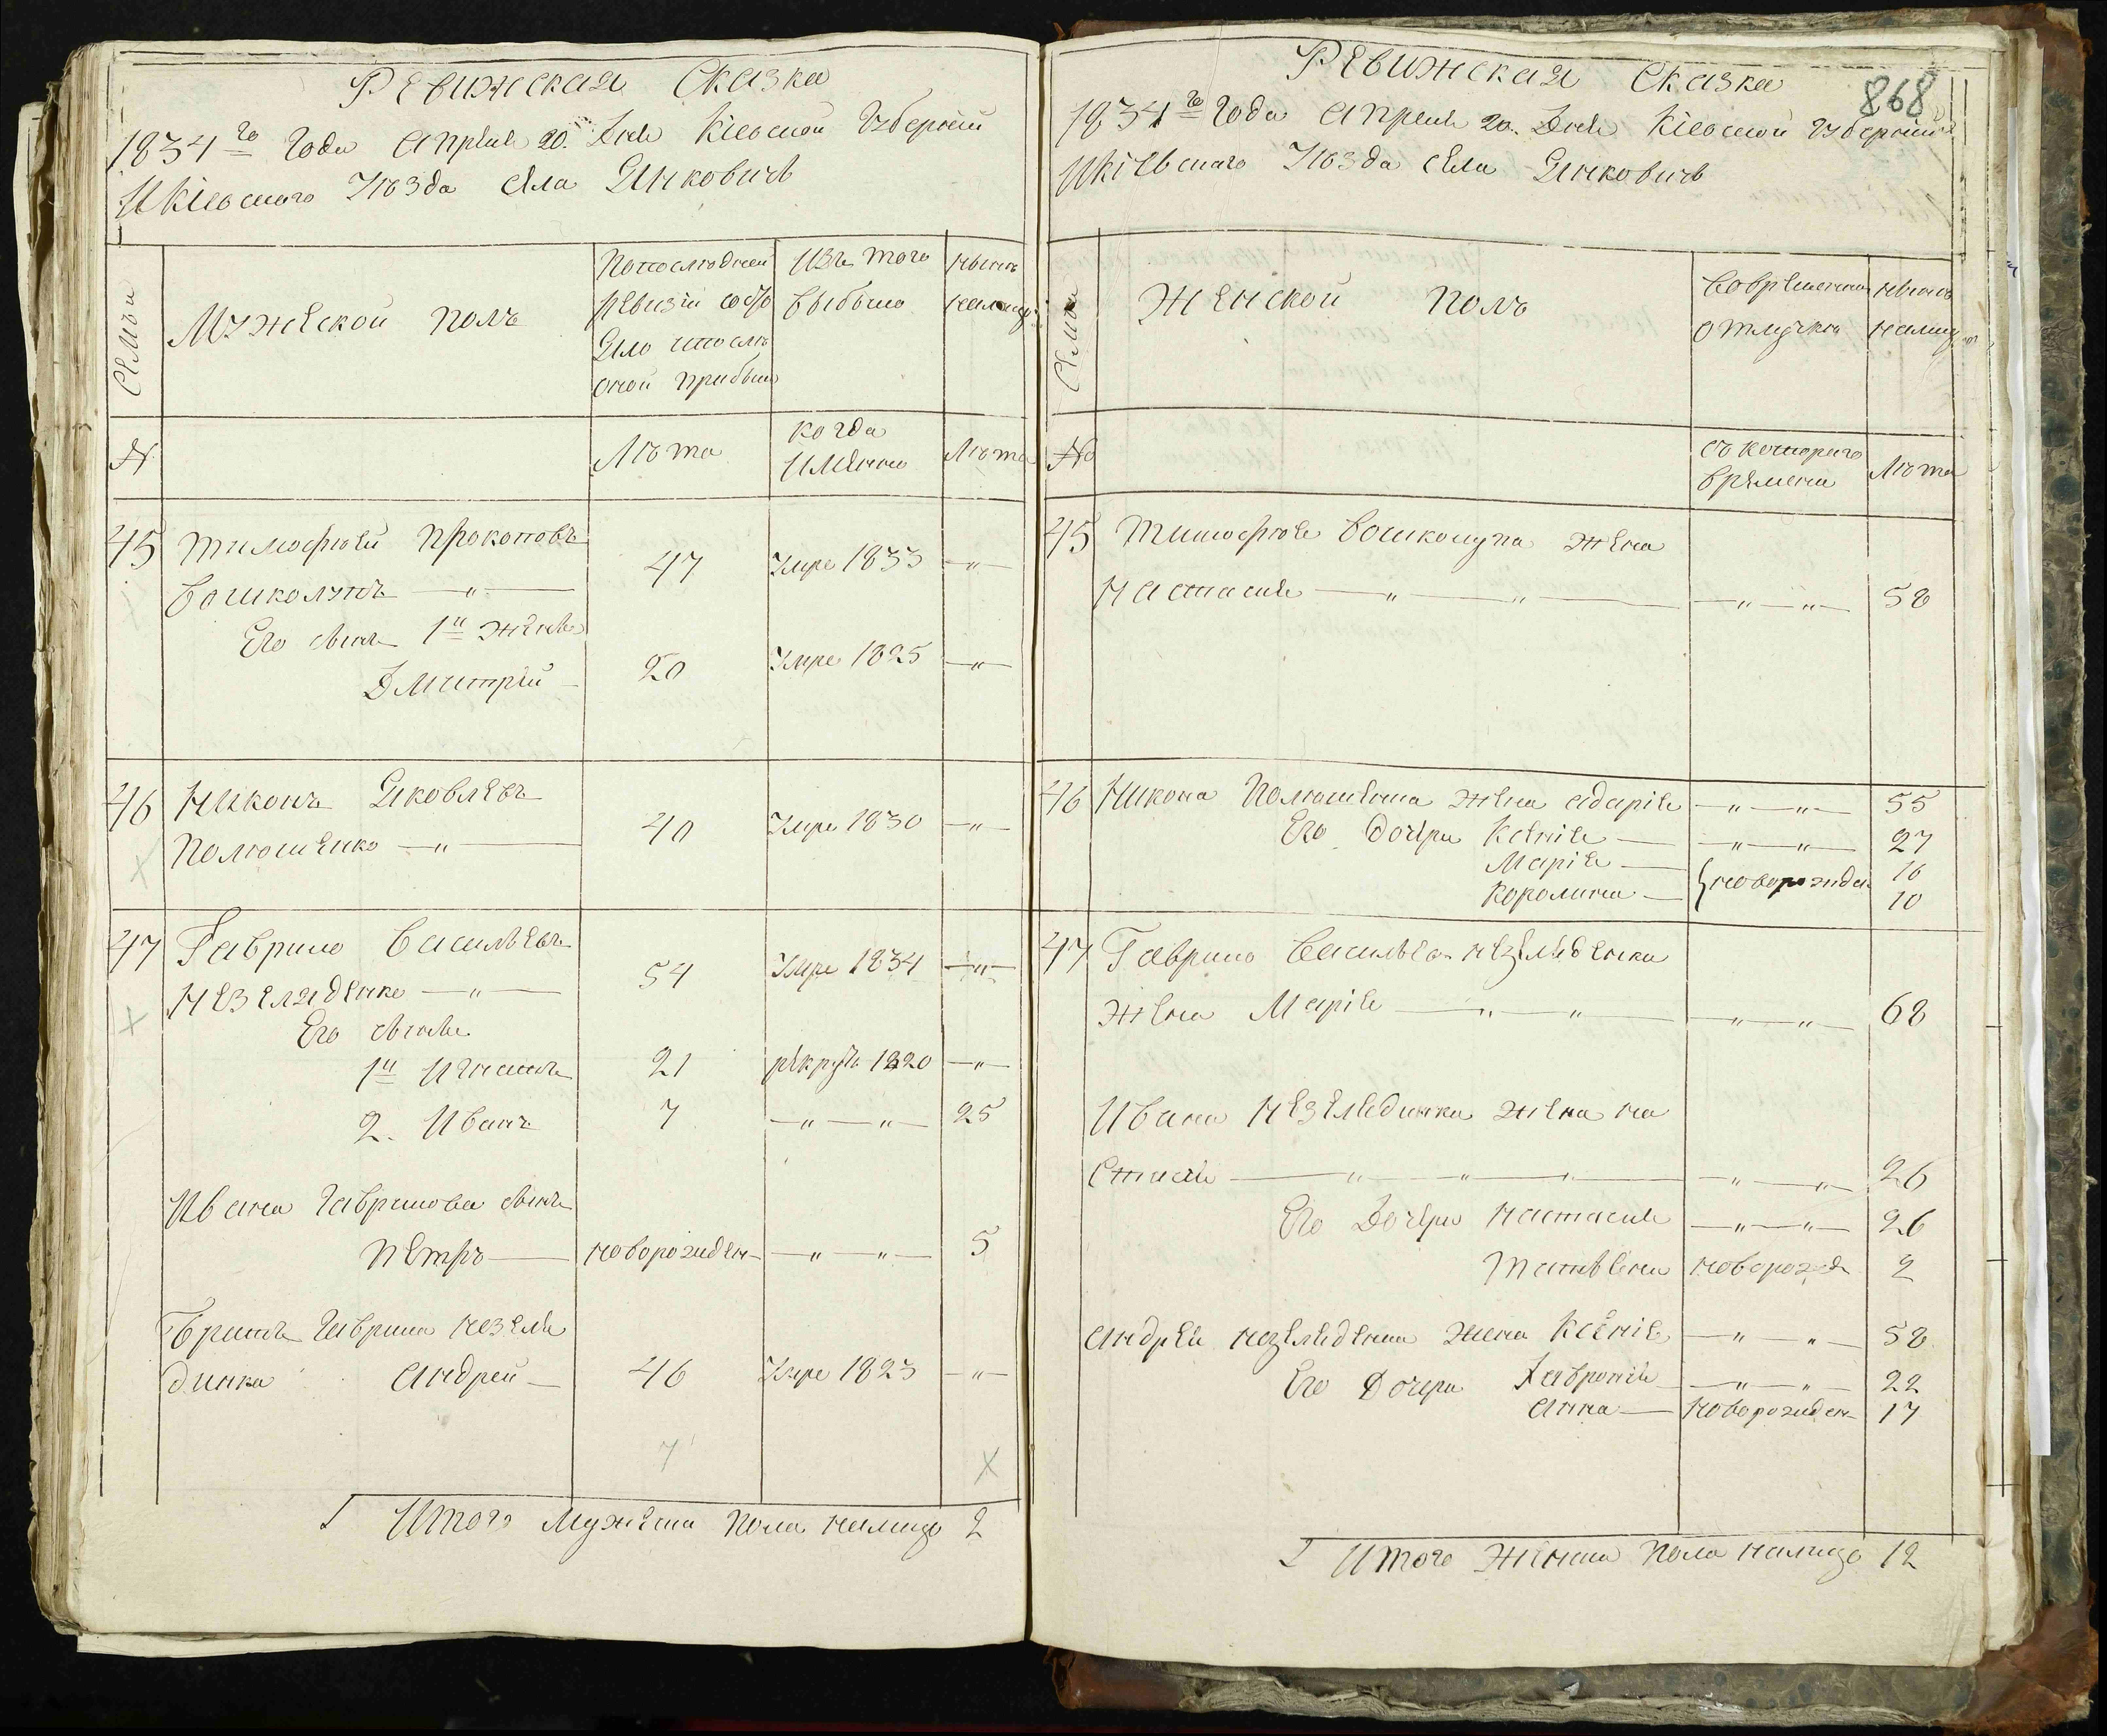 Ревижская Сказка
1834го Года Апреля 20. Дня Кіевской Губерніи
И Кіевского Уѣзда Села Янковичъ
Семьи
Мужеской полъ
Попослѣдней
ревизіи состо
Яло ипослѣ
оной прибыло
Изъ того
выбыло
нынѣ
налицо
№
Лѣта
когда
Именно
Лѣта
45 Тимофѣй Прокоповъ
Вошколупъ — " — 47 Умре 1833 — " —
Его сынъ 1й жены
Дмитрій — 20 Умре 1825 — " —
46 Никонъ Яковлевъ
Полюшенко — " — 40 Умре 1830 — " —
47 Гаврило Васильевъ
Незеляденко — " — 54 Умре 1834 — " —
Его сыны
1й Игнатъ 21 рекрутъ 1820 — " —
2. Иванъ 7 — " — " — 25
Ивана Гаврилова сынъ
Петръ — новорожден — " — " — 5
Братъ Гаврила незеля
динка Андрей — 46 Умре 1823 — " —
7 х
Итого мужеска пола налицо 2
868
Ревижская Сказка
1834го Года Апреля 20. Дня Кіевской Губерніи
И Кіевского Уѣзда Села Янковичъ
Семьи
Женской полъ
Вовременной
отлучкѣ
нынѣ
налицо
№
съ которого
времени
Лѣта
45 Тимофѣя Вошколупа жена
Настасія — " — " — — " — " — 58
46 Никона Полюшенка жена Одарія — " — " — 55
Его дочери Ксенія — — " — " — 27
Марія — новорожден 16
Королина — 10
47 Гаврила Васильева незелиденка
жена Марія — " — " — — " — " — 68
Ивана Незелединка жена на
стасія — " — " — " — — " — " — 26
Его Дочери Настасия — " — " — 26
Татьвяна новорожд 2
Андрея незелиденка жена Ксенія — " — " — 58
Его Дочери Хавронія — " — " — 22
Анна — новорожден 17
Итого женска пола налицо 12